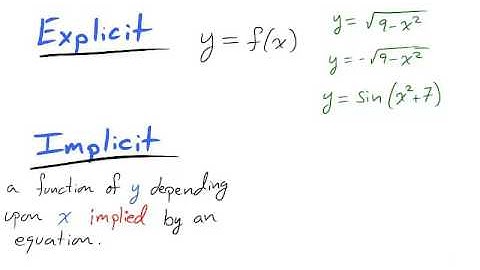 Explicit y = f(x)
y = √(9-x²)
y = -√(9-x²)
y = sin(x²+7)
Implicit
a function of y depending
upon x implied by an
equation.